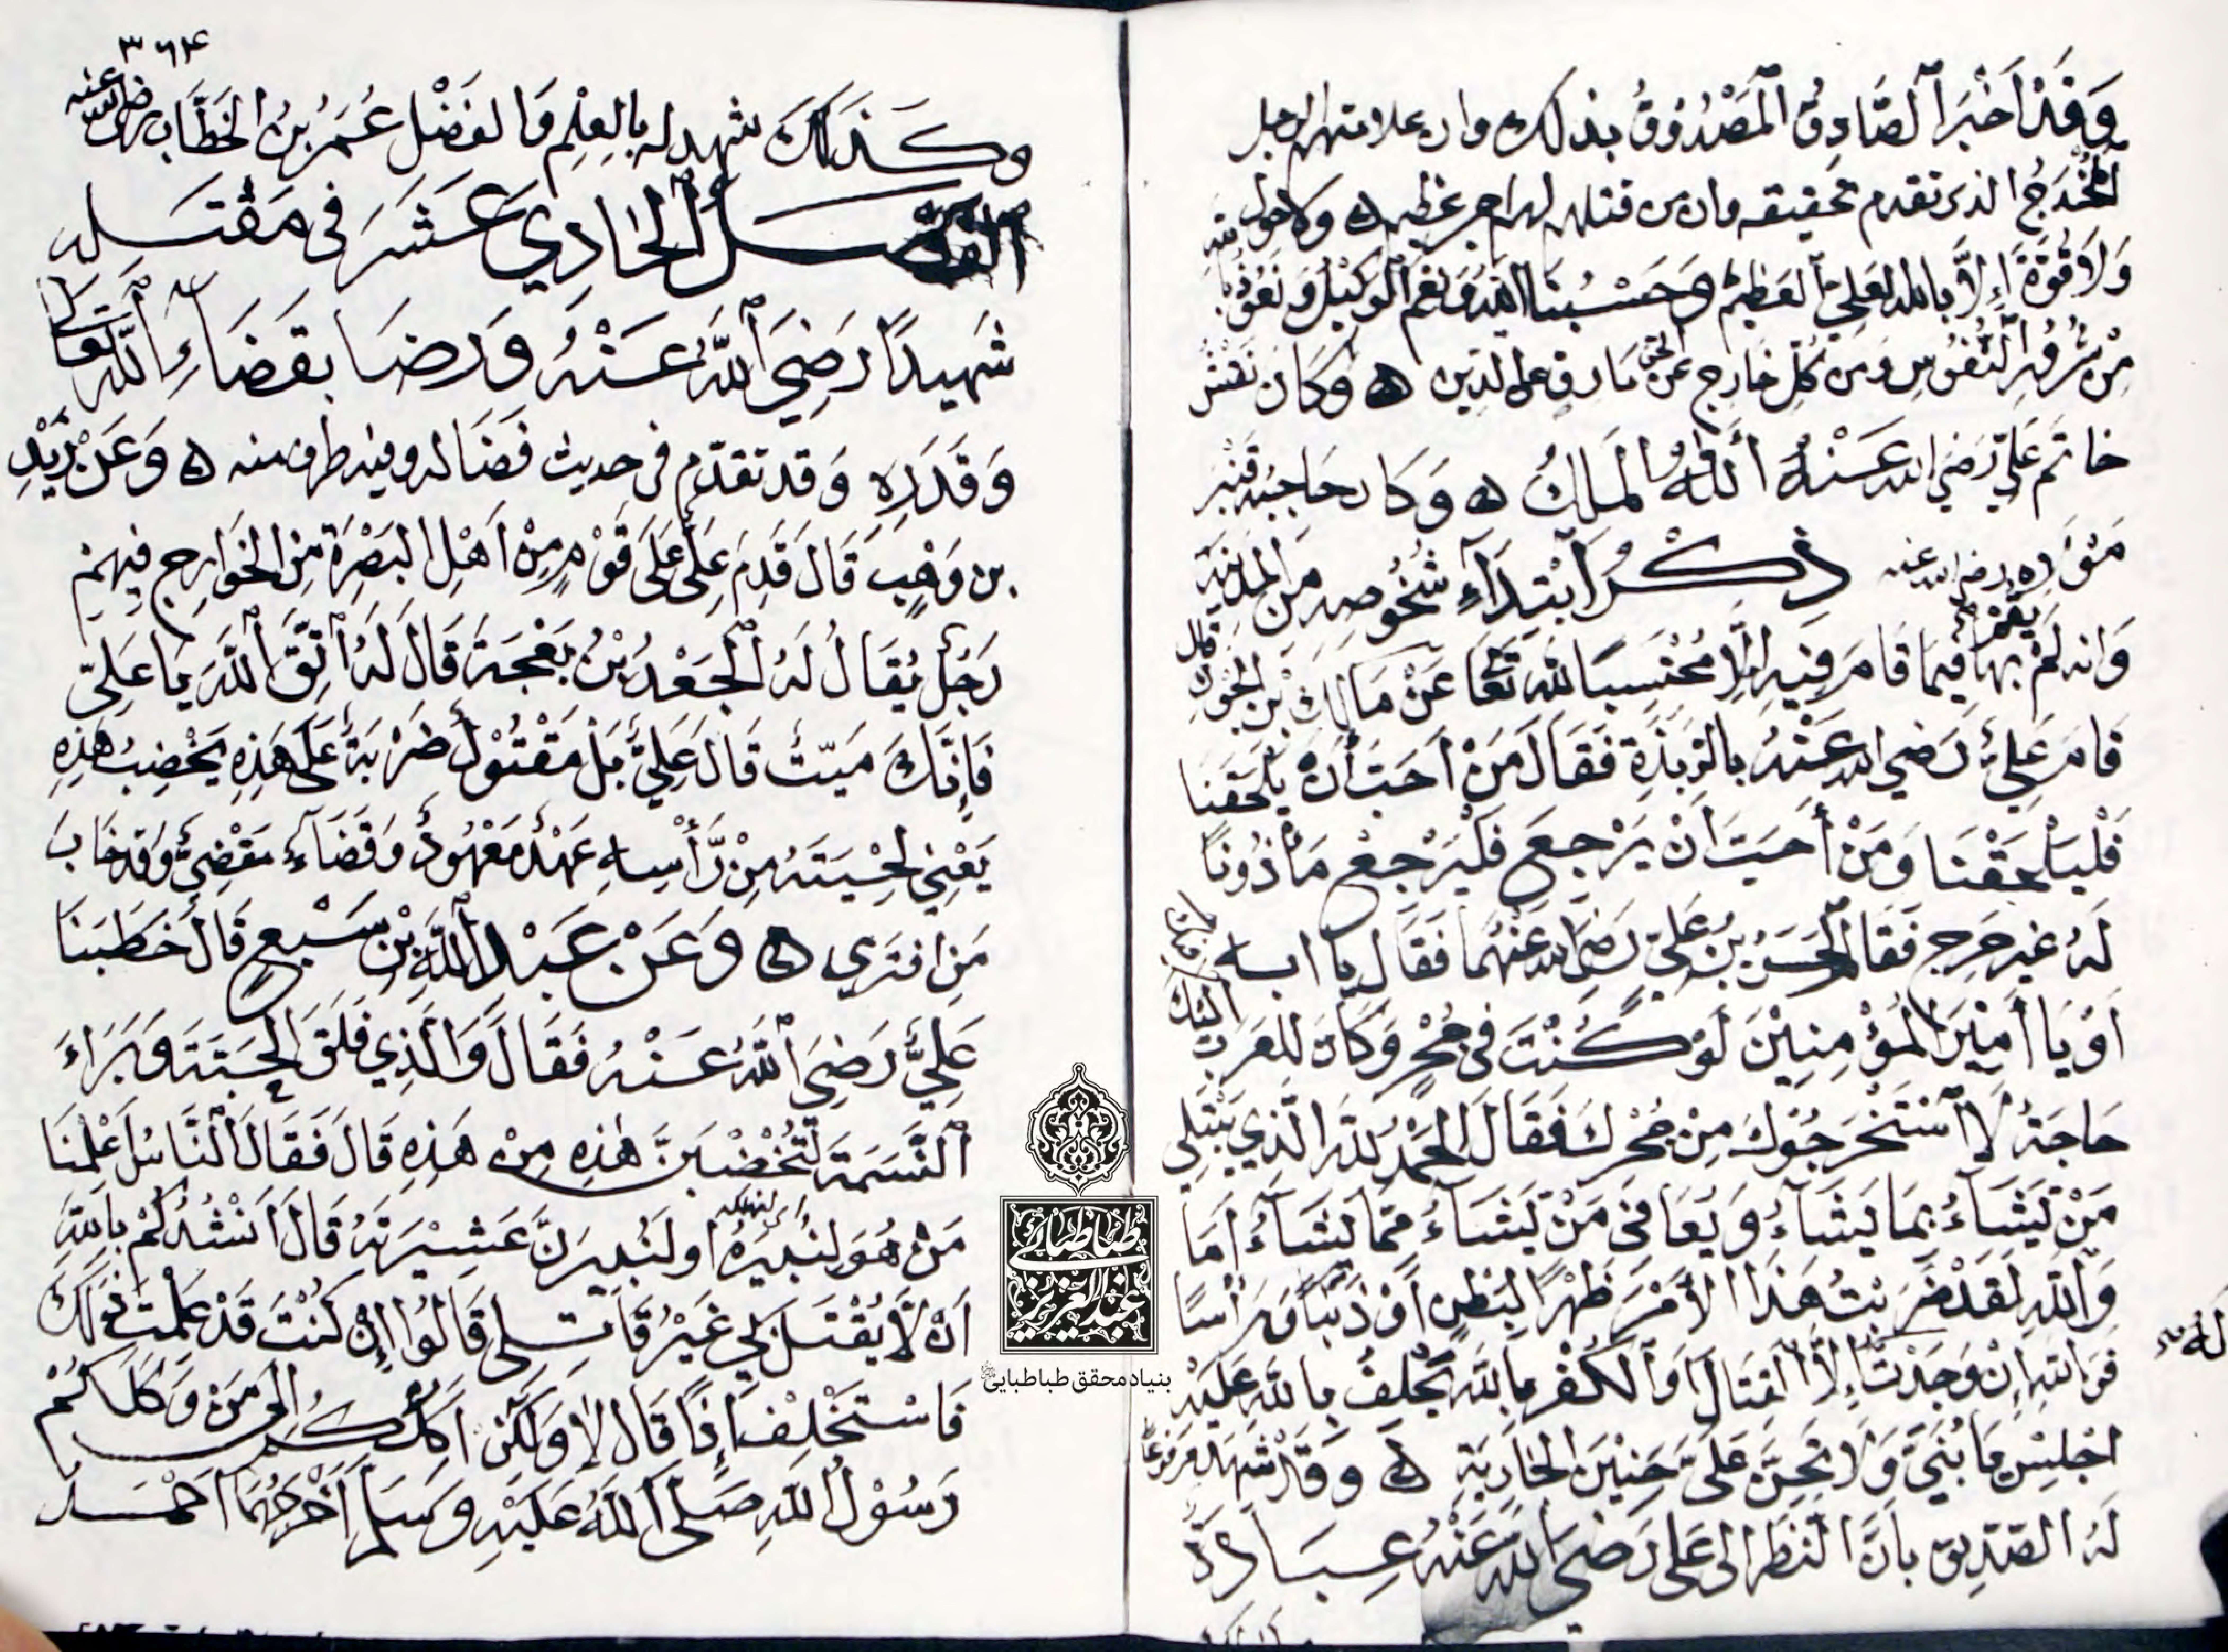 وَقَدْ اَخْبَرَ الصَّادِقُ المَصْدُوْقُ بذلك وان علامتهم الرجل
المُخْدَجُ الذى تقدم تحقيقه وان من قتلهم لهم اجر عظيم ه ولا حول
وَلَا قُوَّةَ اِلَّا بالله العَلِيّ العَظِيْم وَحَسْبُنَا الله وَنِعْمَ الوَكِيْلُ وَنَعُوْذُ بالله
مِنْ شُرُوْرِ النُّفُوْسِ وَمِن كُلِّ خَارِجٍ عَنِ الحق مَارِقٍ عن الدين ه وَكَانَ نَقْشُ
خاتم عَلِيّ رَضِيَ الله عَنْهُ اَللهُ المَلِكُ ه وَكَان حَاجِبُه قَنْبَر
مَوْلَاه رضي الله عنه ذِكْرُ ابْتِدَآءِ شُخُوصِهِ مِنَ المدينة
وَانه لَمْ يقم بها فِيمَا قَامَ فِيْهِ اِلَّا مُحْتَسِبًا لله تَعَالى عَنْ مَالِكِ بْنِ الجَوْنِ قال
قَامَ عَلِيٌّ رَضِيَ الله عَنْهُ بِالرَّبَذَةِ فَقَالَ مَنْ اَحَبَّ أَنْ يَلْحَقَنَا
فَلْيَلْحَقْنَا وَمَنْ أَحَبَّ اَنْ يَرْجِعَ فَلْيَرْجِعْ مَأْذُونًا
لَهُ غير حَرِجٍ فَقَامَ الحَسَنُ بْنُ عَلِيّ رَضِيَ الله عَنْهُمَا فَقَالَ يا ابه
اَوْ يَا أَمِيْرَ المُؤْمِنِيْنَ لَوْ كُنْتَ فِى جُحْرٍ وَكَانَ لِلْعَرَبِ اليك
حَاجَةٌ لَاسْتَخْرَجُوْكَ مِنْ جُحْرِكَ فَقَالَ الحَمْدُ للهِ الَّذِي يَبْتَلِي
مَنْ يَشَاءُ بِمَا يَشَآءُ وَيُعَافِي مَنْ يَشَاءُ مِمَّا يَشَآءُ اَمَا
وَاللهِ لَقَدْ ضَرَبْتُ هَذَا الأَمْرَ ظَهْرًا لِبَطْنٍ اَوْ ذَنَبًا وَرَأْسًا
فَوَاللهِ اِنْ وَجَدْتُ لَهُ اِلَّا القِتَالَ اَوِ الكُفْرَ بِاللهِ يَحْلِفُ بِاللهِ عَلَيْهِ
اجْلِسْ يَا بُنَيَّ وَلَا تَحِنَّ عَلَيَّ حَنِيْنَ الجَارِيَةِ ه وَقَدْ شَهِدَ
لَهُ الصِّدِّيق بِاَنَّ النَظَرَ اِلى عَلِى رَضِيَ الله عَنْهُ عِبَادَة
٣٦٤
وكَذَلِكَ شهد له بِالعِلْمِ وَالفَضْلِ عُمَرُ بْنُ الخَطَّاب رضى الله عنه
الفصل الحَادِي عَشَرَ فى مَقْتَلِهِ
شَهِيدًا رَضِيَ اللهُ عَنْهُ وَرِضَا بِقَضَاءِ اللهِ تعالى
وَقَدَرِهِ وَقد تقدّم فى حديث فَضَالَه وفيه طرف منه ه وَعَنْ زَيْدِ
بن وَهْبٍ قَالَ قَدِمَ عَلِيٌّ عَلَى قَوْمٍ مِنْ اَهْلِ البَصْرَةِ مِنَ الخَوَارِجِ فِيهِمْ
رَجُلٌ يُقَالُ لَهُ الجَعْدُ بْنُ بَعْجَةَ قَالَ لَهُ اتَّقِ اللهَ يَا عَلِيّ
فَإِنَّكَ مَيِّتٌ قَالَ عَلِيٌّ بَلْ مَقْتُوْلٌ ضَرْبَةٌ عَلَى هَذِهِ يَخْضِبُ هَذِهِ
يَعْنِي لِحْيَتَهُ مِنْ رَأْسِهِ عَهْدٌ مَعْهُودٌ وَقَضَآءٌ مَقْضِيٌّ وَقَدْ خَابَ
مَنِ افْتَرَى ه وَعَنْ عَبْدِ اللهِ بْنِ سَبْعٍ قَالَ خَطَبَنَا
عَلِيٌّ رَضِيَ اللهُ عَنْهُ فَقَالَ وَالَّذِي فَلَقَ الحَبَّةَ وَبَرَاءَ
النَّسَمَةَ لَتُخْضَبَنَّ هٰذِهِ مِنْ هَذِهِ قَالَ فَقَالَ النَّاسُ اَعْلِمْنَا
مَنْ هُوَ لِنُبِيْرَهُ اى لنهلكه او لَنُبِيرَنَّ عَشِيْرَتَهُ قَالَ اَنْشُدُكُمْ بِاللهِ
اَنْ لَا يُقْتَلَ بِي غَيْرُ قَاتِلِي قَالُوا اِنْ كُنْتَ قَدْ عَلِمْتَ ذَلِكَ
فَاسْتَخْلِفْ اِذًا قَالَ لَا وَلَكِنْ اَكِلُكُمْ اِلَى مَنْ وَكَلَكُمْ
رَسُوْلُ اللهِ صَلَّى اللهُ عَلَيْهِ وسَلَّمَ اَخْرَجَهُمَا احمد
طباطبائى
عبدالعزيز
بنیاد محقق طباطبایی